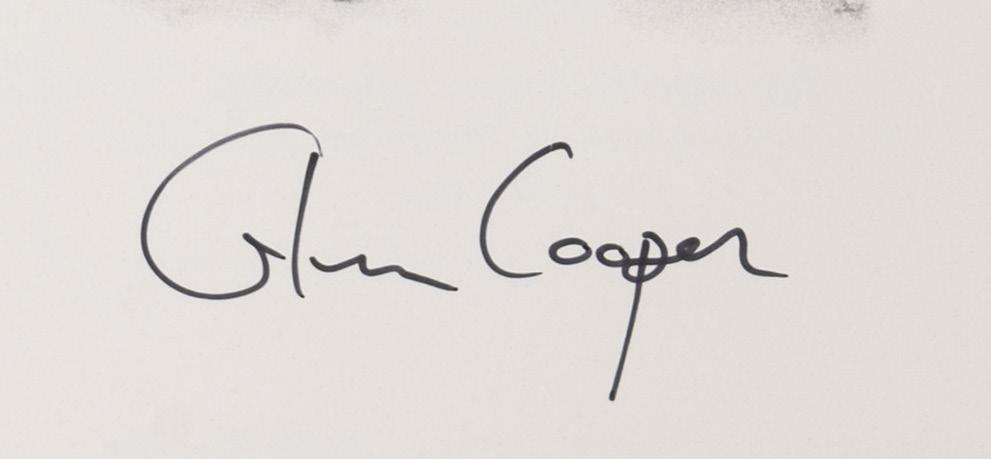 Glenn Cooper